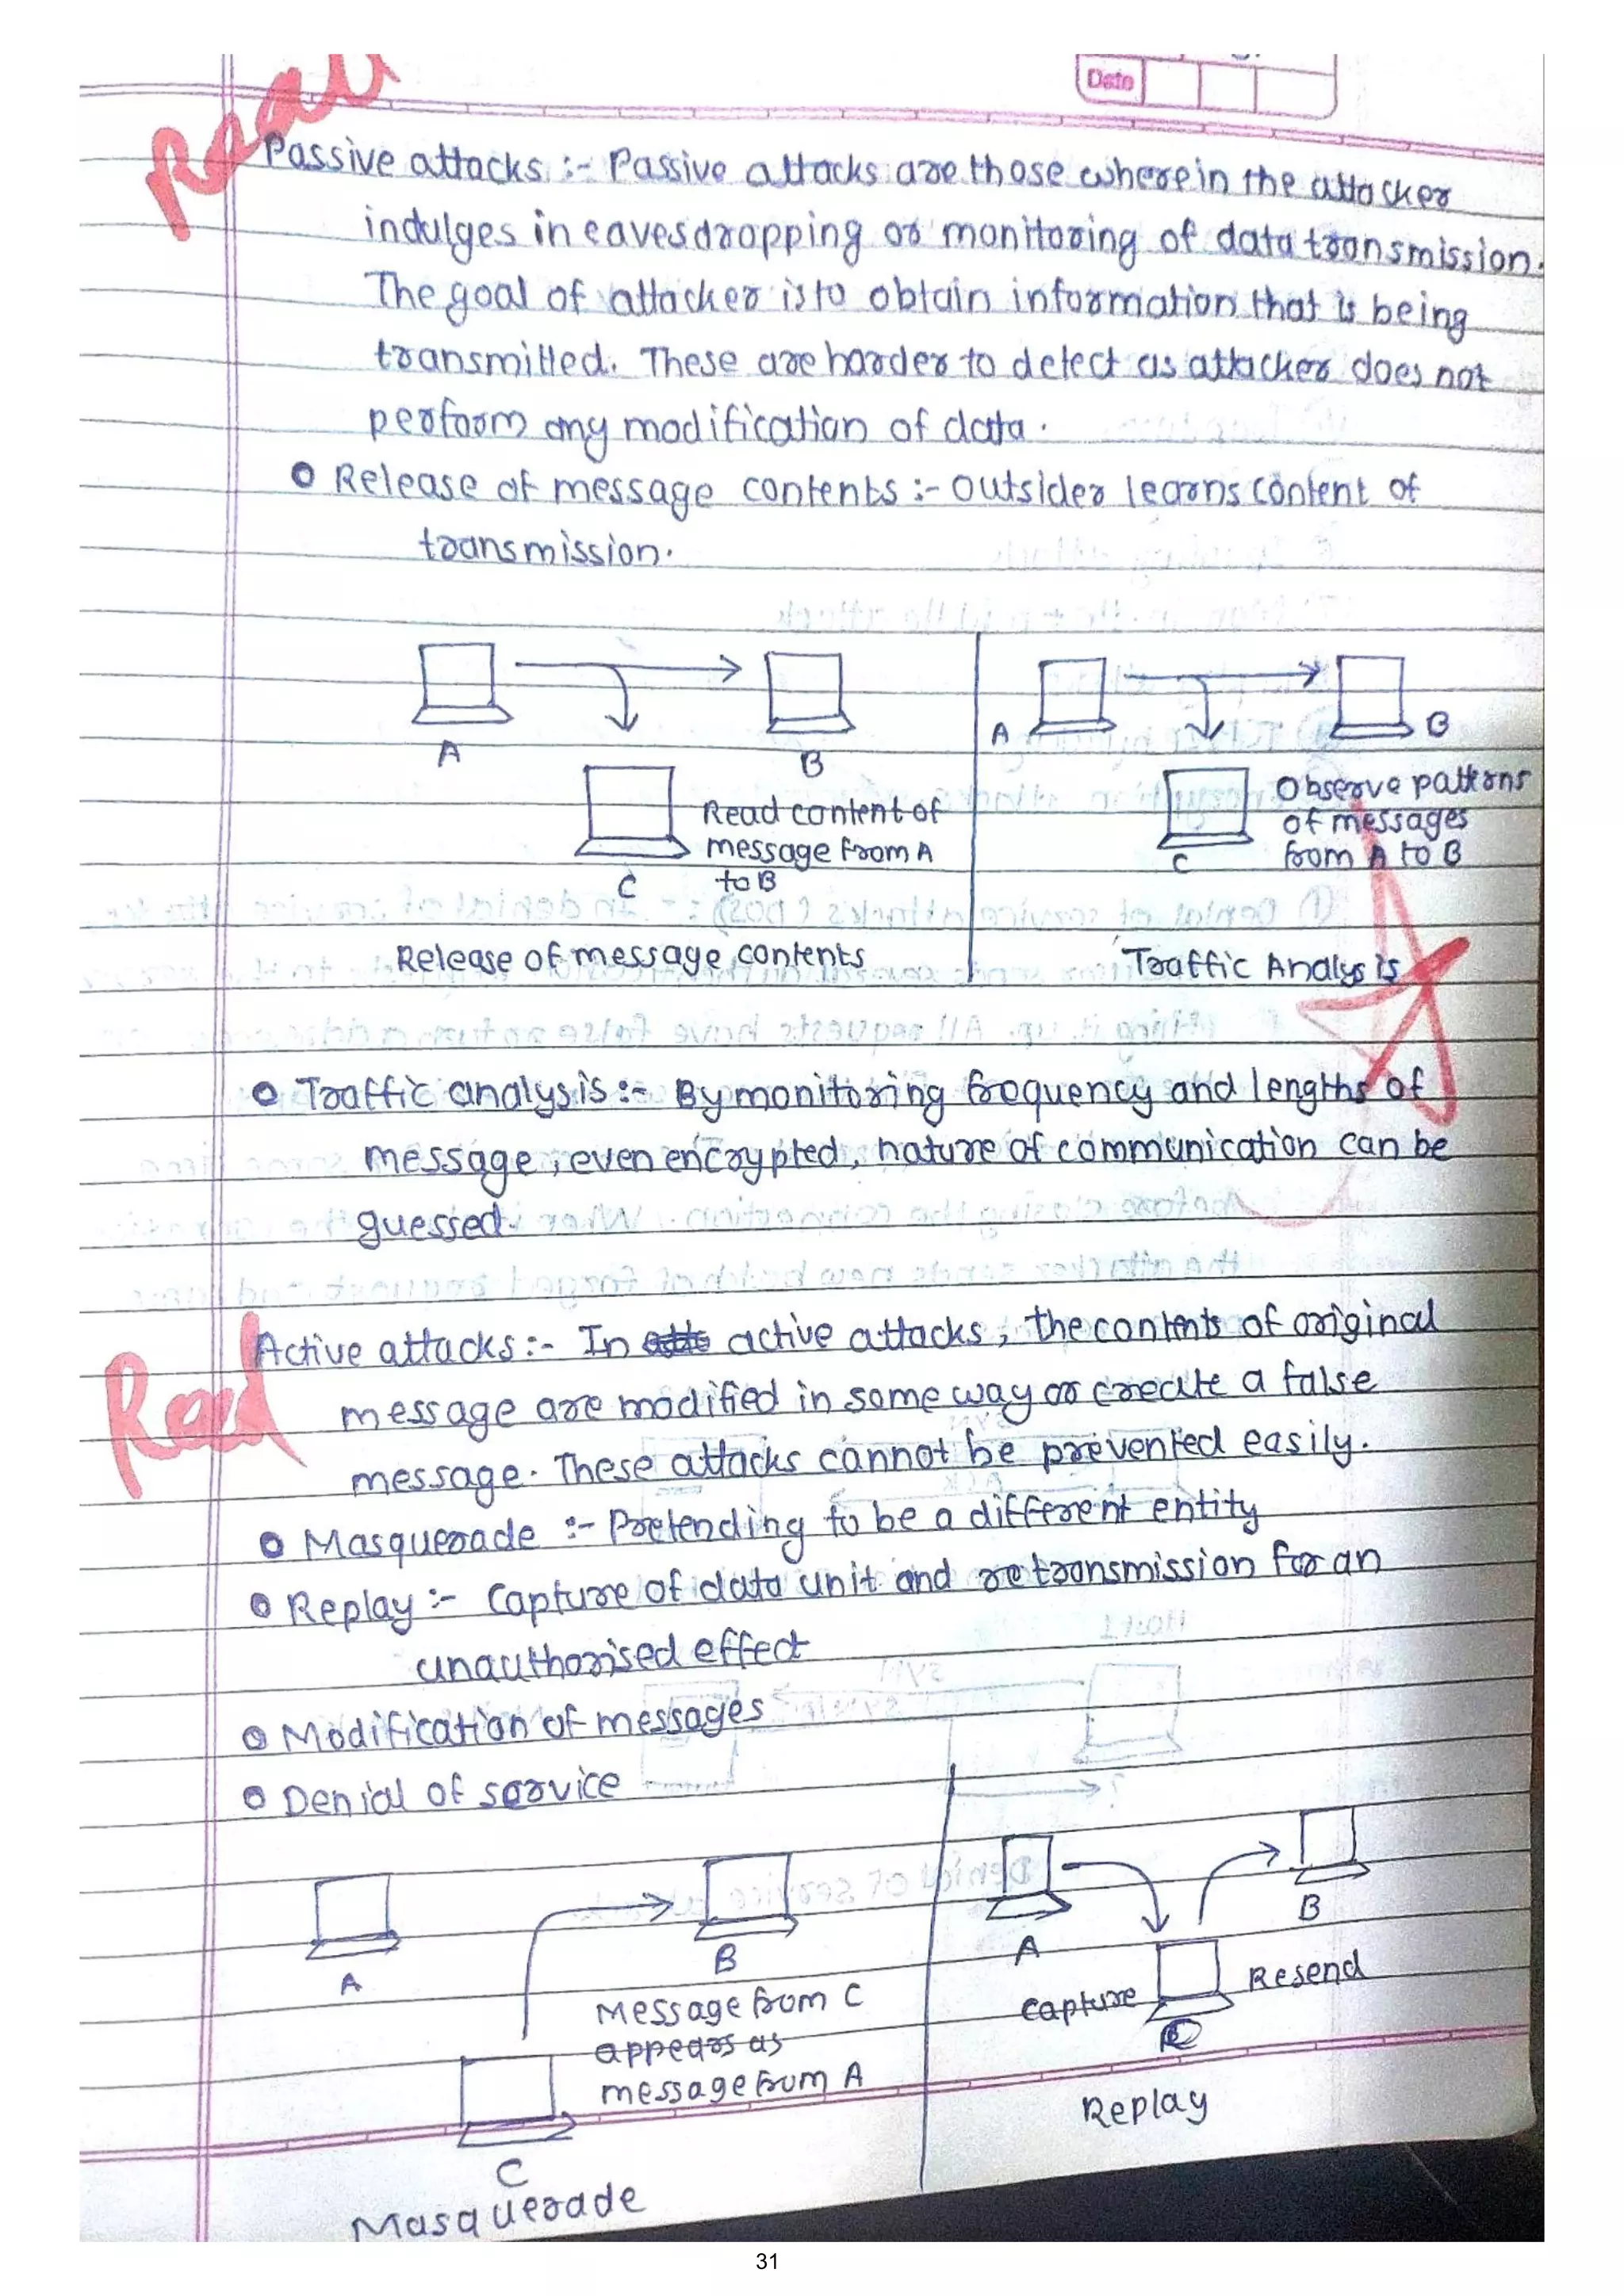 Date
Read
Passive attacks :- Passive attacks are those wherein the attacker
indulges in eavesdropping or monitoring of data transmission.
The goal of attacker is to obtain information that is being
transmitted. These are harder to detect as attacker does not
perform any modification of data.
Release of message contents :- outsider learns content of
transmission.
A
B
Read content of
message from A
to B
C
Release of message contents
A
B
Observe patterns
of messages
from A to B
C
Traffic Analysis
Traffic analysis :- By monitoring frequency and lengths of
message, even encrypted, nature of communication can be
guessed.
Read
Active attacks :- In active attacks, the contents of original
message are modified in some way or create a false
message. These attacks cannot be prevented easily.
Masquerade :- Pretending to be a different entity
Replay :- Capture of data unit and retransmission for an
unauthorised effect
Modification of messages
Denial of service
A
B
Message from C
appears as
message from A
C
Masquerade
A
B
Capture
Resend
C
Replay
31